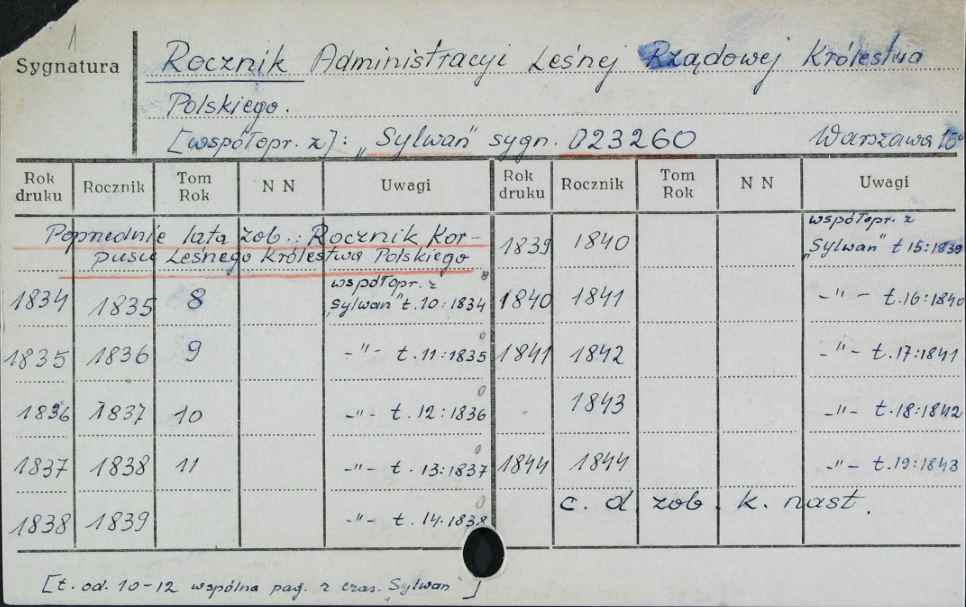 1
Sygnatura
Rocznik Administracyi Leśnej Rządowej Królestwa
Polskiego.
[współopr. z]: „Sylwan" sygn. 023260 Warszawa
Rok druku Rocznik Tom Rok N N Uwagi Rok druku Rocznik Tom Rok N N Uwagi
Poprzednie lata zob.: Rocznik Kor-
pusu Leśnego Królestwa Polskiego
1834 1835 8 współopr. z „Sylwan" t. 10:1834
1835 1836 9 -"- t. 11:1835
1836 1837 10 -"- t. 12:1836
1837 1838 11 -"- t. 13:1837
1838 1839 -"- t. 14.1838
1839 1840 współopr. z „Sylwan" t 15:1839
1840 1841 -"- t. 16:1840
1841 1842 -"- t. 17:1841
1843 -"- t. 18:1842
1844 1844 -"- t. 19:1843
c. d. zob. k. nast.
[t. od. 10-12 wspólna pag. z czas. „Sylwan"]